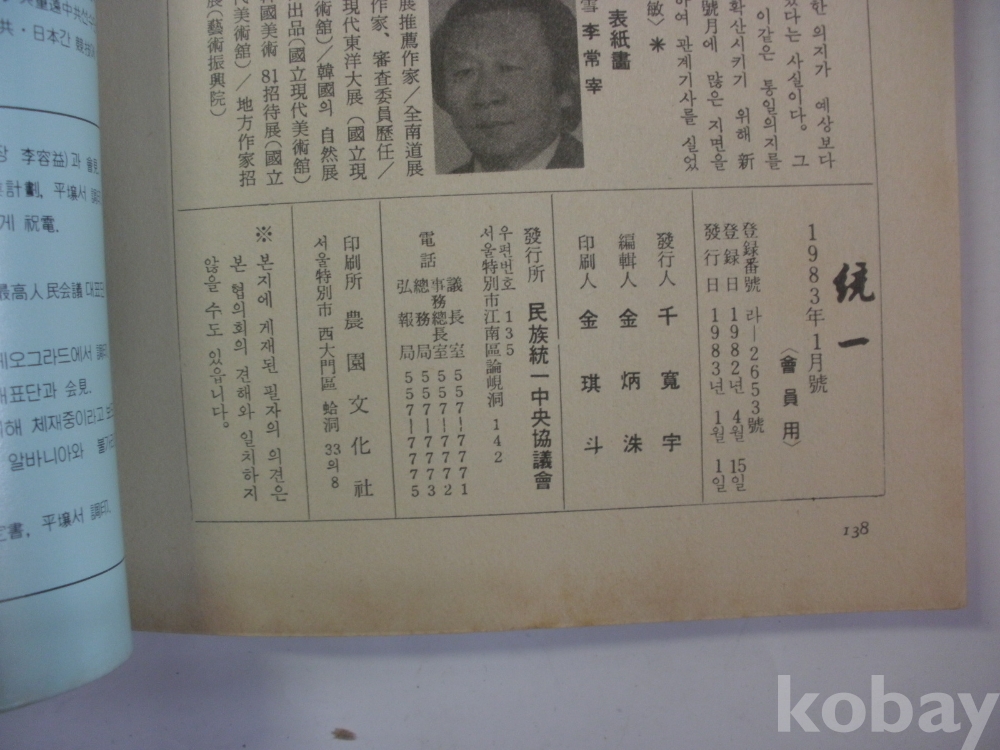 한 의지가 예상보다
있다는 사실이다. 그
이같은 통일의지를
확산시키기 위해 新
號月에 많은 지면을
하여 관계기사를 실었
表紙畵
李常宰
敏) *
展推薦作家/全南道展
作家、審査委員歷任/
現代東洋大展(國立現
美術館)/韓國의 自然展
出品(國立現代美術館)
韓國美術 81招待展(國立
代美術館)/地方作家招
展(藝術振興院)
統一
1983年 1月號
〈會員用〉
登録番號 라-2653號
登録日 1982년 4월 15일
發行日 1983년 1월 1일
發行人 千寬宇
編輯人 金炳洙
印刷人 金琪斗
發行所 民族統一中央協議會
우편번호 135
서울特別市江南區論峴洞 142
電話
議長室 557-7771
事務總長室 557-7772
總務局 557-7773
弘報局 557-7775
印刷所 農園文化社
서울特別市 西大門區 蛤洞 33의8
※ 본지에 게재된 필자의 의견은
본 협의회의 견해와 일치하지
않을 수도 있읍니다.
138
共・日本간
장 李容益)과
計劃, 平壤서
게 祝電.
最高人民会議 대표단
오그라드에서
대표단과 会見.
해 체재중이라고
알바니아와
定書, 平壤서 調印.
kobay